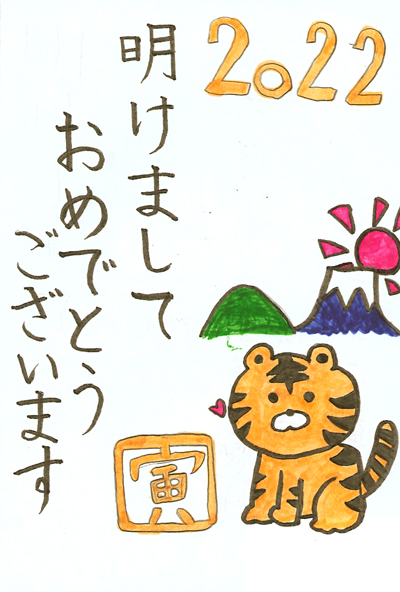 2022
明けまして
おめでとう
ございます
寅